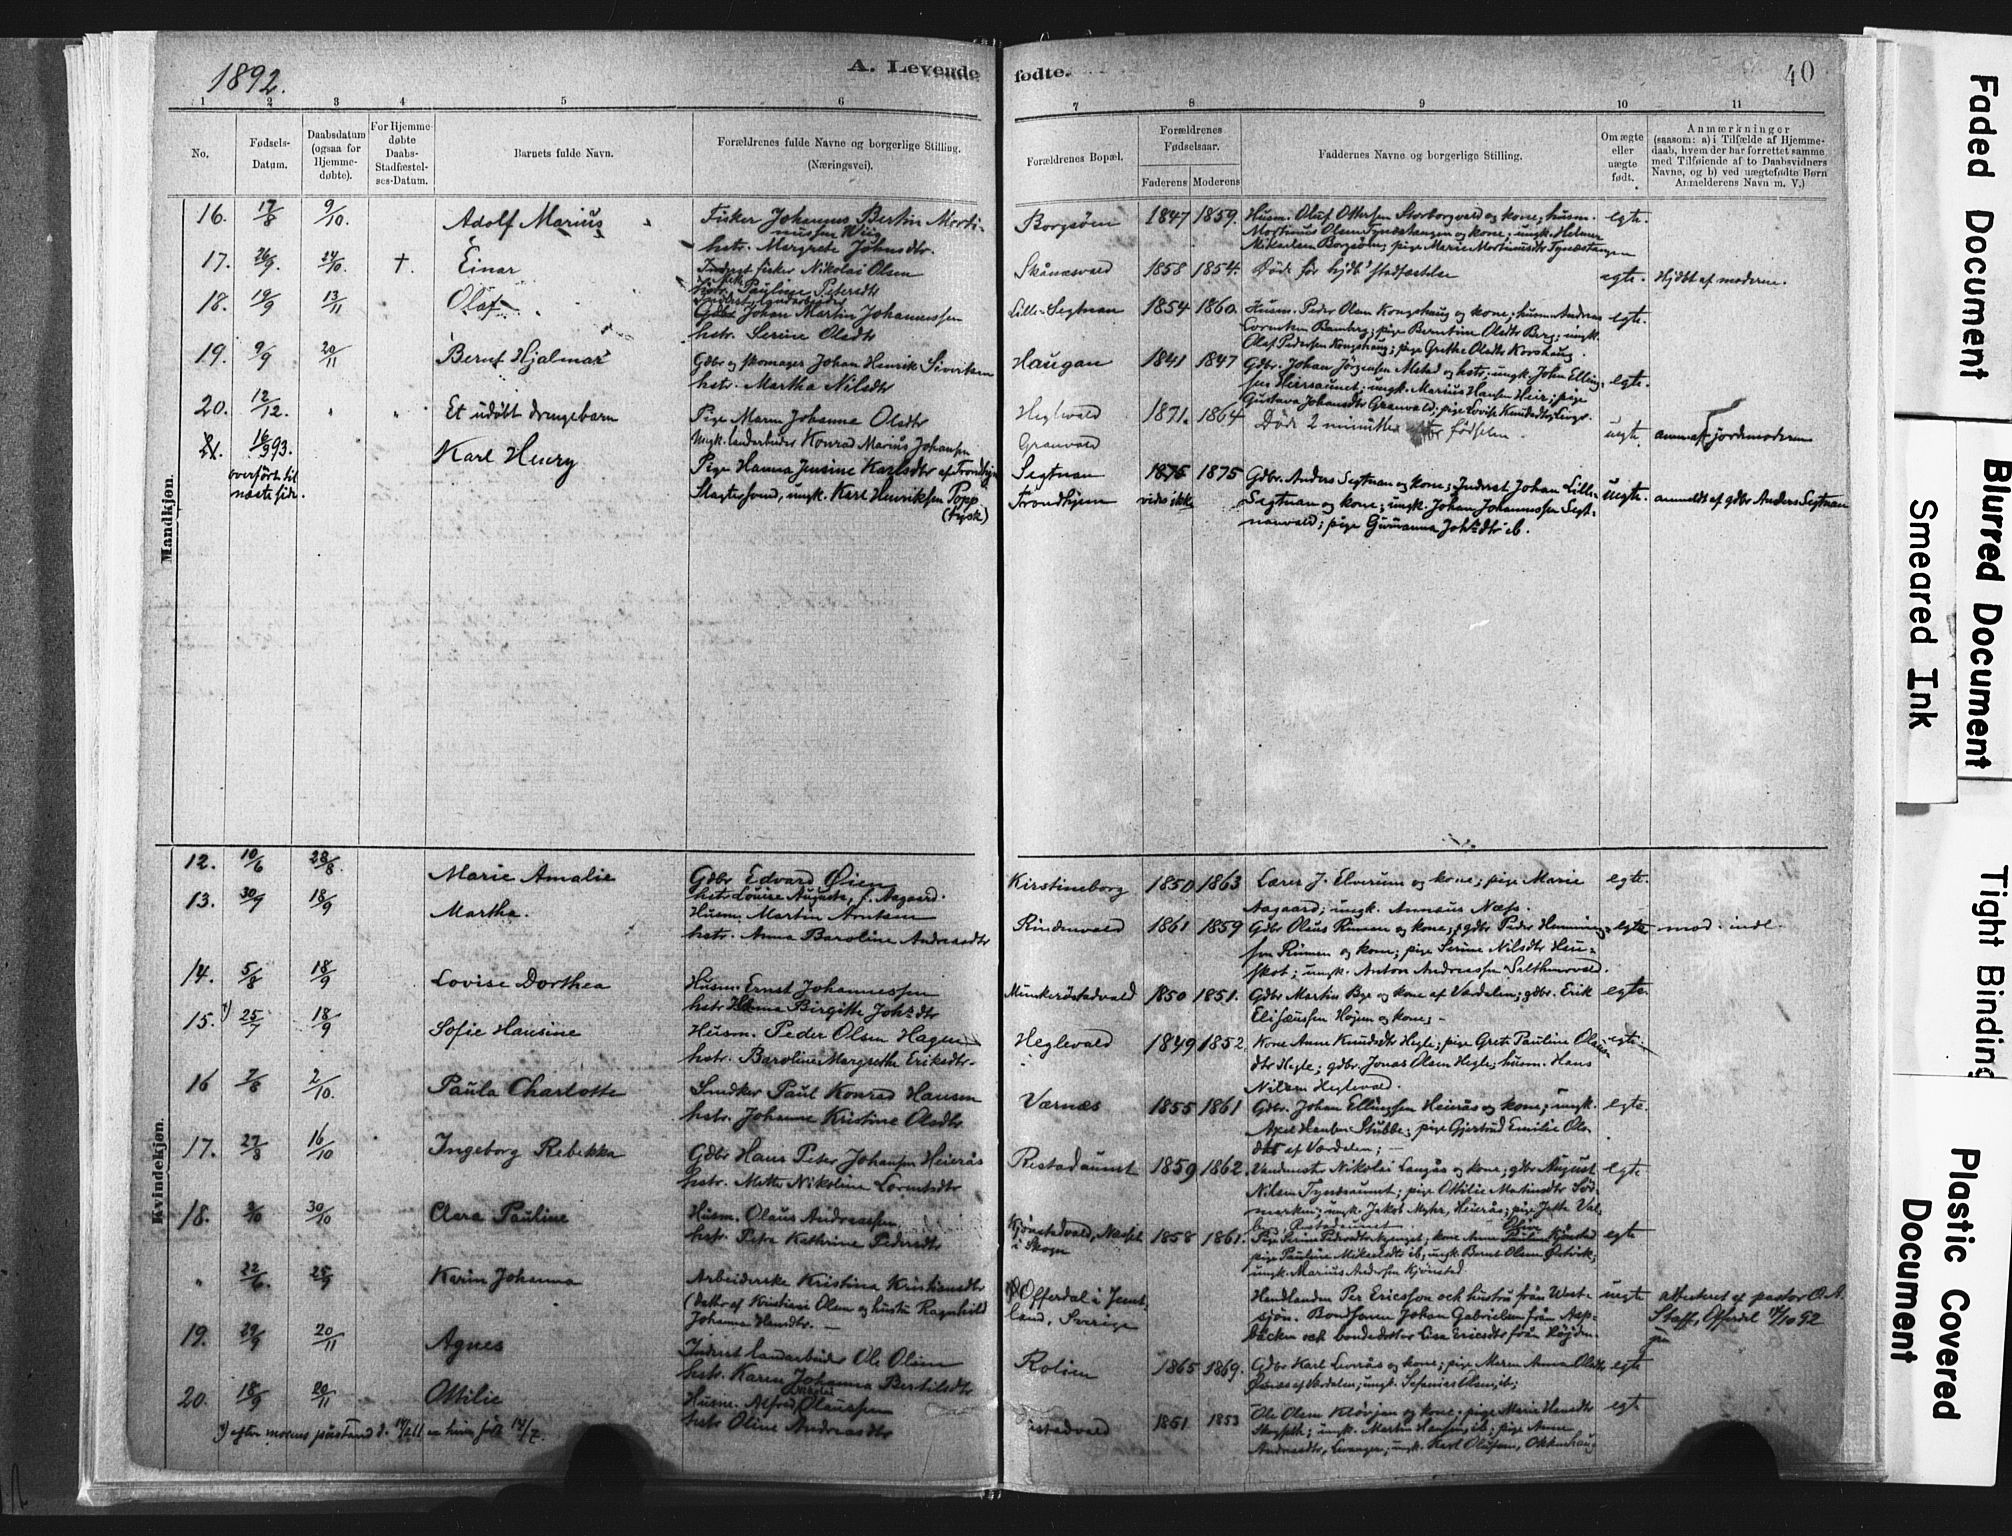 1892.
A. Levende
fødte.
40
1 2 3 4 5 6 7 8 9 10 11
No.
Fødsels-
Datum.
Daabsdatum
(ogsaa for
Hjemme-
døbte).
For Hjemme-
døbte
Daabs-
Stadfæstel-
ses-Datum.
Barnets fulde Navn.
Forældrenes fulde Navne og borgerlige Stilling.
(Næringsvei).
Forældrenes Bopæl.
Forældrenes
Fødselsaar.
Faderens Moderens
Faddernes Navne og borgerlige Stilling.
Om ægte
eller
uægte
født.
Anmærkninger
(saasom: a) i Tilfælde af Hjemme-
daab, hvem der har forrettet samme
med Tilføiende af to Daabsvidners
Navne, og b) ved uægtefødte Børn
Anmelderens Navn m. V.)
Mandkjøn.
16. 17/8 9/10. Adolf Marius Fisker Johannes Bertin Morti-
nussen Wiig
hstr. Margrete Johnsdtr.
Borgsøen 1847 1859. Husm. Oluf Ottersen Storborgvald og kone; husm.
Mortinus Olsen Tynæstangen og kone; ungk. Helmer
Mikaelsen Borgsøen; pige Marie Mortinusdtr Tynæstangen
egte.
17. 26/9. 24/10. †. Einar Inderst fisker Nikolai Olsen
hstr. Pauline Petersdtr
Skånæsvald 1858 1854. Døde før hjdbs stadfæstelse egte. Hjdbt af moderen.
18. 19/9 13/11 Olaf Inderst, landarbeider
Johan Martin Johannessen
hstr. Serine Olsdtr
Lille-Segtnan 1854 1860. Husm. Peder Olsen Kongshaug og kone; husm Andreas
Lorentsen Bamberg; pige Berntine Olsdtr Berg; ungk.
Olaf Pedersen Kongshaug; pige Grethe Olsdtr Korshaug.
egte.
19. 9/9 20/11 Bernt Hjalmar Gdbr og skomager Johan Henrik Sivertsen
hstr. Martha Nilsdtr
Haugan 1841 1847 Gdbr. Johan Jørgensen Alstad og hstr; ungk. John Elling-
sen Heirsaunet; ungk. Marius Hansen Heir; pige
Gustava Johansdtr Granvald; pige Lovise Knudsdtr
egte.
20. 12/12. " " Et udøbt drengebarn Pige Maren Johanna Olsdtr
Ungk. landarbeider Konrad Marius Johansen
Heglevald
Granvald
1871. 1864 Døde 2 minutter efter fødselen. uegte. anm af jordmoderen
21. 16/9 93. Karl Henry
overført til
næste side.
Pige Hanna Jensine Karlsdtr af Trondhjem
Slagtersvend, ungk. Karl Henriksen Popp
(tysk)
Segtnan
Trondhjem
1875 1875
vides ikke
Gdbr. Anders Segtnan og kone; Inderst Johan Lille-
Segtnan og kone; ungk. Johan Johannessen Segt-
nanvald; pige Gurianna Johsdtr ib.
uegte. anmeldt af gdbr Anders Segtnan
Kvindekjøn.
12. 10/6 28/8. Marie Amalie Gdbr Edvard Øien
hstr Louise Augusta, f. Aagaard.
Kirstineborg 1850 1863 Lærer J. Elverum og kone; pige Marie
Aagaard; ungk. Annæus Næss.
egte.
13. 30/9 18/9 Martha. Husm. Martin Arntsen
hstr. Anna Baroline Andreasdtr
Rindenvald 1861 1859 Gdbr Oluus Rinnan og kone; gdbr Peder Henning-
sen Rinnen og kone; pige Serine Nilsdtr Heu-
skot; ungk. Anton Andreassen Salthenvald.
egte mod. indl.
14. 5/8 18/9 Lovise Dorthea Husm. Ernst Johannessen
hstr. Hanna Birgitte Johsdtr
Munkerøstadvald 1850 1851. Gdbr Martin Bye og kone af Værdalen; gdbr. Erik
Elisæussen Højem og kone; -
egte.
15. 1) 25/7 18/9 Sofie Hansine Husm. Peder Olsen Hagen
hstr. Baroline Margrethe Eriksdtr.
Heglevald 1849 1852. Kone Anne Knudsdtr Hegle; pige Grete Pauline Olaus-
dtr Hegle; gdbr. Jonas Olsen Hegle; husm. Hans
Nilsen Heglevald.
egte.
16 7/8 2/10. Paula Charlotte Snedker Paul Konrad Hansen
hstr. Johanne Kristine Olsdtr.
Værnes 1855 1861 Gdbr. Johan Ellingsen Heierås og kone; ungk.
Axel Hansen Stubbe; pige Gjertrud Emilie Ols-
dtr af Værdalen; -
egte.
17. 27/8 16/10 Ingeborg Rebekka Gdbr Hans Peter Johansen Heierås
hstr. Mette Nikoline Lorentsdtr
Restadaunet 1859 1862. Vandmester Nikolai Langås og kone; gdbr August
Nilsen Tynesaunet; pige Ottilie Martinsdtr Sør-
marken; ungk. Jakob Myhr, Heierås; pige Jette Val-
berg, Restadaunet.
egte
18. 3/10 30/10 Clara Pauline Husm. Olaus Andreassen
hstr. Petra Kathrine Pedersdtr
Kjønstadvald, Næsset
i Skogn
1858 1861. Pige Serine Pedersdtr Nyenget; kone Anne Oline Kjønstad
pige Pauline Mikalsdtr ib; ungk. Bernt Olsen Østvik;
ungk. Marius Andersen Kjønstad.
egte
" 22/6. 25/9 Karin Johanna Arbeiderske Kristina Kristiansdtr
(datter af Kristian Olsen og hustru Ragnhild
Johanna Hansdtr. -
Offerdal i Jemt-
land, Sverige
Handlanden Per Ericsson och hustru från West-
sjön. Bondsonen Johan Gabrielsen från Asp-
bäcken och bondedotter Lisa Ericsdtr från Höjden.
uegte attesteret af pastor O. A.
Staff, Offerdal 17/10 92
19. 29/9 20/11 Agnes Inderst landarbeider Ole Olsen
hstr. Karen Johanna Bertilsdtr
Rolsen 1865 1869. Gdbr Karl Leerås og kone; pige Maren Anna Olsdtr
Øsnes af Værdalen; ungk. Sefanias Olsen, ib;
egte
20. 18/9 20/11 Ottilie Husm. Alfred Nikolai Olaussen
hstr Oline Andreasdtr
1861 1853 Ole Olsen Kløvjan og kone; pige Marie Hansdtr
Skogseth; ungk. Martin Hansen, ib; pige Anna
Andreasdtr, Levanger; ungk. Karl Olufsen, Okkenhaug
egte
1) efter morens påstand d. 14/2 11 er hun født 14/7.
Faded Document
Blurred Document
Smeared Ink
Tight Binding
Plastic Covered
Document